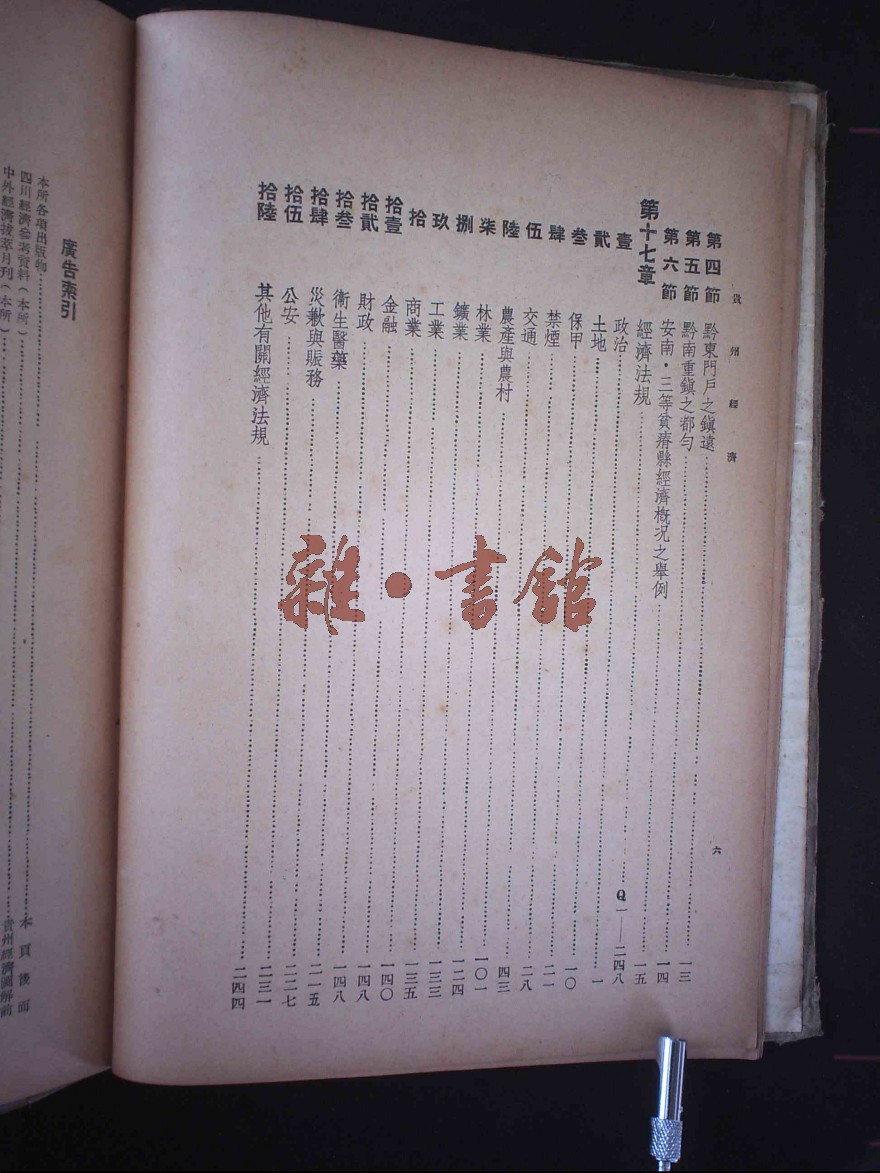 貴州經濟
六
第四節 黔東門戶之鎮遠……一三
第五節 黔南重鎮之都勻……一四
第六節 安南・三等貧瘠縣經濟概況之舉例……一五
第十七章 經濟法規……Q一——二四八
壹 政治……一
貳 土地……一〇
叁 保甲……二一
肆 禁煙……二八
伍 交通……四三
陸 農產與農村……一〇一
柒 林業……一二四
捌 鑛業……一三三
玖 工業……一三五
拾 商業……一四〇
拾壹 金融……一四八
拾貳 財政……一四八
拾叁 衞生醫藥……二一五
拾肆 災歉與賑務……二二七
拾伍 公安……二三一
拾陸 其他有關經濟法規……二四四
雜・書館
廣告索引
本所各項出版物……本頁後面
四川經濟參考資料（本所）……貴州經濟圖解前
中外經濟拔萃月刊（本所）